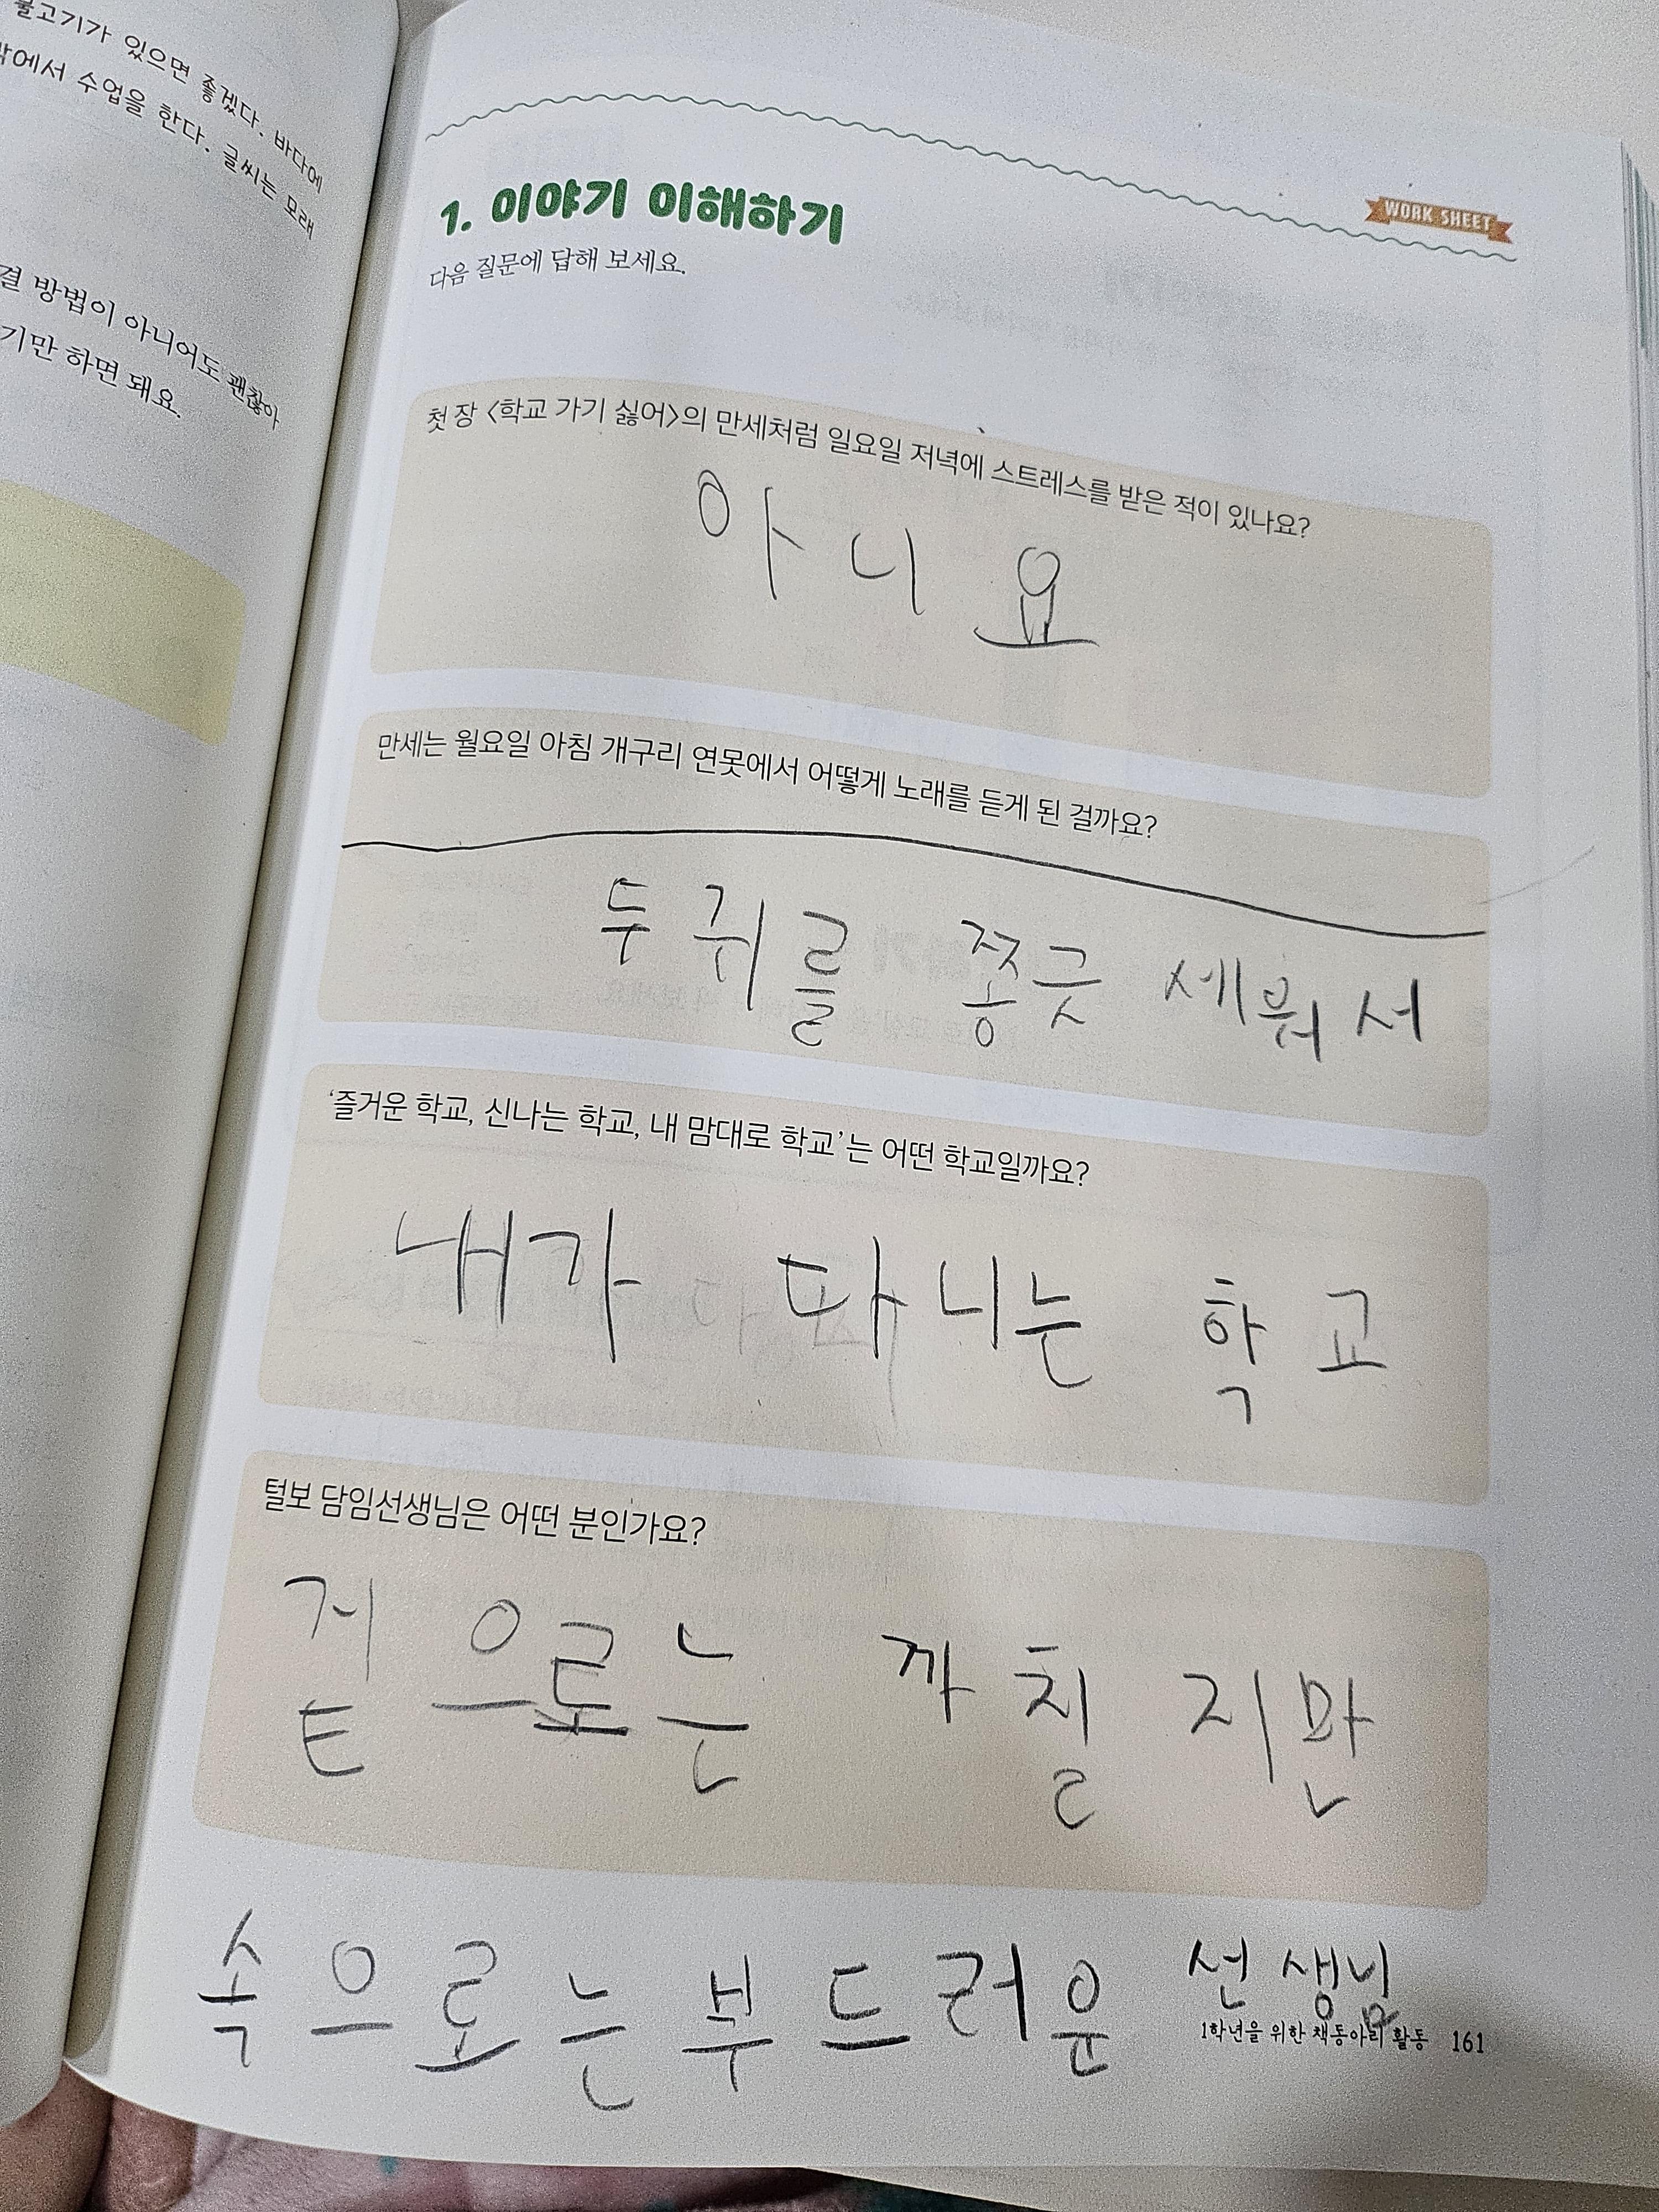 불고기가 있으면 좋겠다. 바다에
밖에서 수업을 한다. 글씨는 모래
결 방법이 아니어도 괜찮아
기만 하면 돼요.
WORK SHEET
1. 이야기 이해하기
다음 질문에 답해 보세요.
첫 장 <학교 가기 싫어>의 만세처럼 일요일 저녁에 스트레스를 받은 적이 있나요?
아니요
만세는 월요일 아침 개구리 연못에서 어떻게 노래를 듣게 된 걸까요?
두 귀를 쫑긋 세워서
'즐거운 학교, 신나는 학교, 내 맘대로 학교'는 어떤 학교일까요?
내가 다니는 학교
털보 담임선생님은 어떤 분인가요?
겉으로는 까칠지만
속으로는 부드러운 선생님
1학년을 위한 책동아리 활동 161